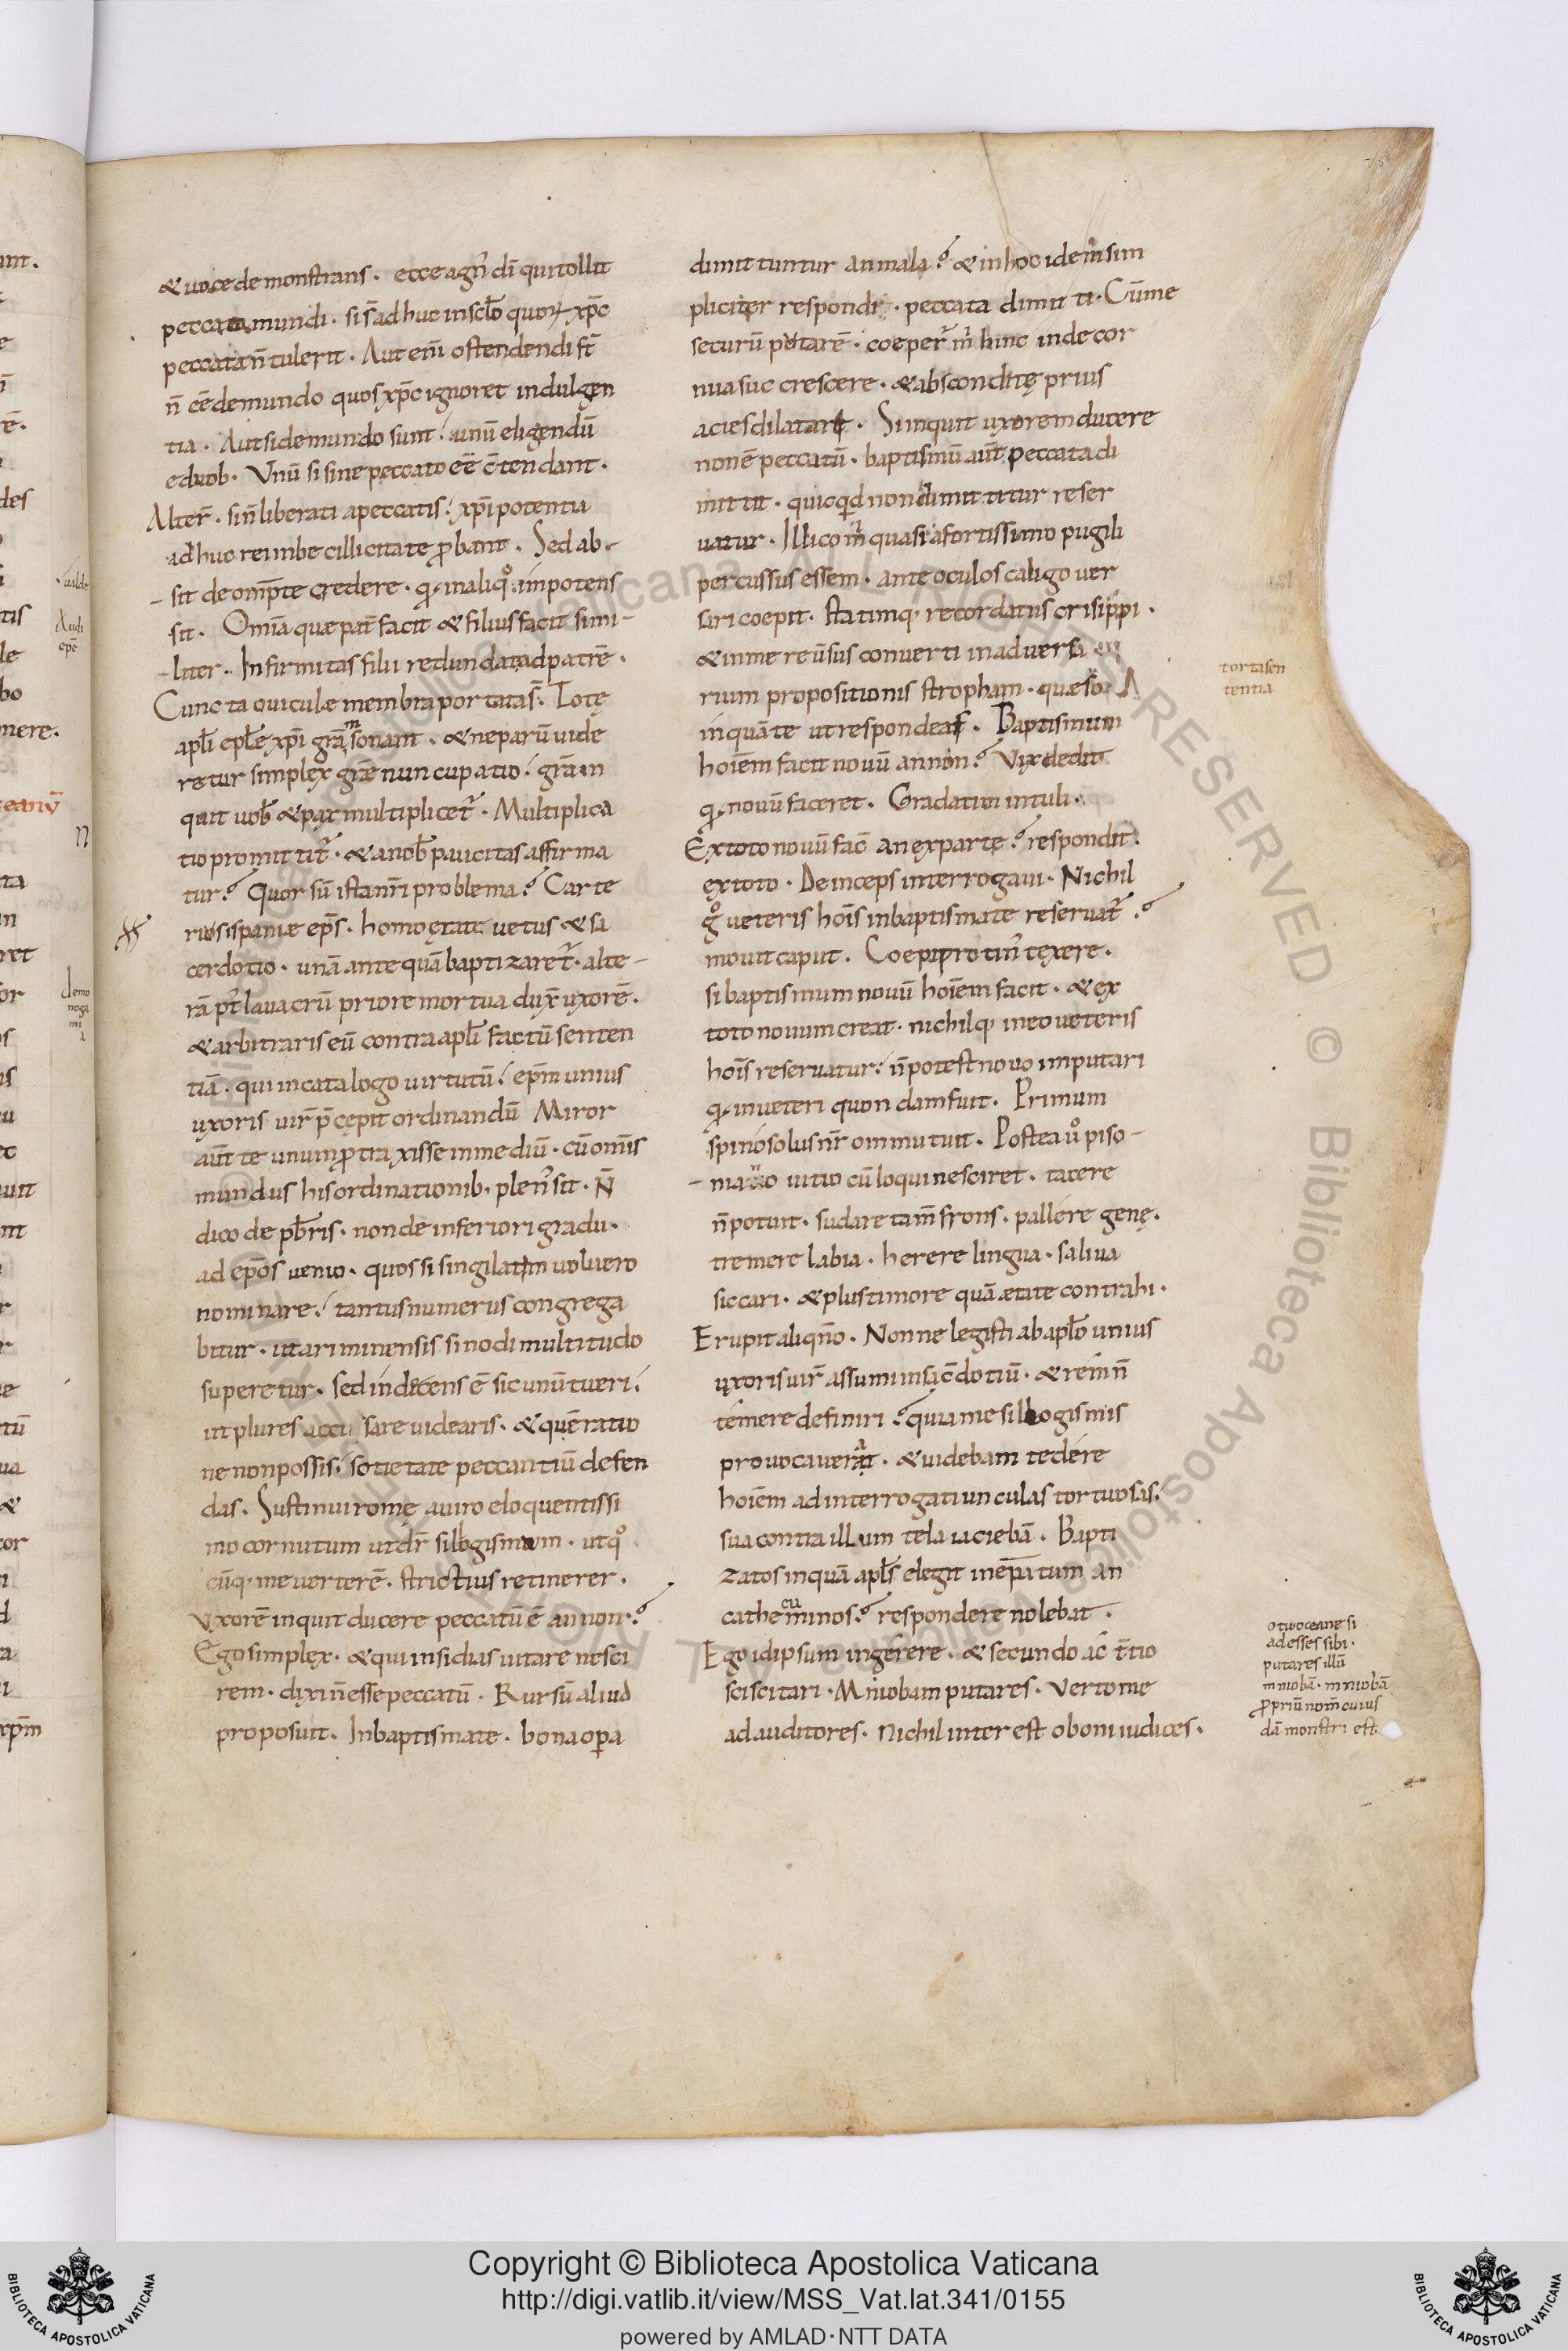 & uoce demonstrans. ecce agn᾽ dī qui tollit
peccata mundi. si s̄ adhuc in sclō quoꝝ xp̄c
peccata n̄ tulerit. Aut eni᷑ ostendendi st̄
n̄ eē de mundo quos xp̄c ignoret indulgen
tia. Aut si de mundo sunt: unū eligendū
e duob. Vnū si sine peccato eē c̄tendant.
Alter᷑. si n̄ liberati a peccatis: xp̄i potentia
adhuc rei imbecillicitate ꝓbant. Sed ab-
-sit de omp̄te credere. q᷑ in aliqͦ impotens
sit. Omīa quæ pat᷑ facit & filius facit simi-
-liter. Infirmitas filii redundat ad patrē.
Cuncta ouiculæ membra portatas᷑. Totę
aplī eplē xp̄i grām sonant. & ne parū uide
retur simplex græ nuncupatio: grā in
quit uob̄ & pax multiplicet᷑. Multiplica
tio promittit᷑. & a nob̄ paucitas affirma
tur? Quorsū ista nr̄i problema? Carte
rius ispaniæ ep̄s. homo ętate uetus & sa
cerdotio. unā antequā baptizaret᷑. alte-
rā pt̄ lauacrū priore mortua dux̄ uxorē.
& arbitraris eū contra aplī factū senten
tiā. qui in catalogo uirtutū: ep̄m unius
uxoris uir᷑ p̄cępit ordinandū Miror
aut̄ te unum ꝓtraxisse in mediū. cū omīs
mundus his ordinationib. plen᾽ sit. N̄
dico de pb̄ris. non de inferiori gradu.
ad epōs uenio. quos si singilatim uoluero
nominare: tantus numerus congrega
bitur. ut ariminensis sinodi multitudo
superetur. sed indecens ē sic unū tueri:
ut plures accusare uidearis. & quē ratio
ne non possis: sotietate peccantiū defen
das. Sustinui romę a uiro eloquentissi
mo cornutum ut dr̄ silogismum. ut qͦ
cūq. me uerterē. strictius retinerer.
Vxorē inquit ducere peccatū ē an non?
Ego simplex. & qui insidias uitare nesci
rem. dixi n̄ esse peccatū. Rursū aliud
proposuit. In baptismate. bona oꝑa
dimittuntur an mala? & in hoc idem sim
pliciter respondi. peccata dimitti. Cū me
securū putarē. coeper᷑ m̄ hinc inde cor
nua suc crescere. & absconditę prius
acies dilatari. Si inquit uxorem ducere
non ē peccatū. baptismū aut̄ peccata di
mittit. quicqd non dimittitur reser
uatur. Illico m̄ quasi a fortissimo pugili
percussus essem. ante oculos caligo uer
sari coepit. statimq. recordatus crisippi.
& in me reūsus conuerti in aduersa
rium propositionis stropham. quæso
inquā te ut respondeas. Baptismum
hoiēm facit nouū an non? Vix dedit
q᷑ nouū faceret. Gradatim intuli.
Ex toto nouū fac̄ an ex parte? respondit
ex toto. Deinceps interrogaui. Nichil
gͦ ueteris hoīs in baptismate reseruat᷑?
mouit caput. Coepi protin᾽ texere.
si baptismum nouū hoiēm facit. & ex
toto nouum creat. nichilq. in eo ueteris
hoīs reseruatur: n̄ potest nouo imputari
q᷑ in ueteri quondam fuit. Primum
spinosolus nr̄ ommutuit. Postea u͛o piso-
-niano uitio cū loqui nesciret. tacere
n̄ potuit. sudare tam̄ frons. pallere genę.
tremere labia. herere lingua. saliua
siccari. & plus timore quā ætate contrahi.
Erupit aliqn̄o. Nonne legisti ab aplō unius
uxoris uir᷑ assumi in sac̄dotiū. & rem n̄
temere definiri? quia me sillogismis
prouocauerat. & uidebam tedere
hoiēm ad interrogatiunculas tortuosas:
sua contra illum tela iaciebā. Bapti
zatos inquā apls̄ elegit in ep̄atum an
cathecuminos? respondere nolebat.
Ego idipsum ingerere. & secundo ac̄ t̄tio
sciscitari. Mniobam putares. Verto me
ad auditores. nichil interest o boni iudices.
torta sen
tentia
o tu oceane si
adesses sibi.
putares illū
mniobā. mniobā
ꝓpriū nom̄ cuius
dā monstri est.
Copyright © Biblioteca Apostolica Vaticana
http://digi.vatlib.it/view/MSS_Vat.lat.341/0155
powered by AMLAD·NTT DATA
BIBLIOTECA APOSTOLICA VATICANA
BIBLIOTECA APOSTOLICA VATICANA